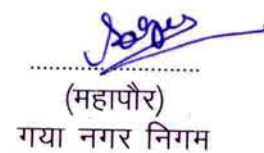 (महापौर)
गया नगर निगम